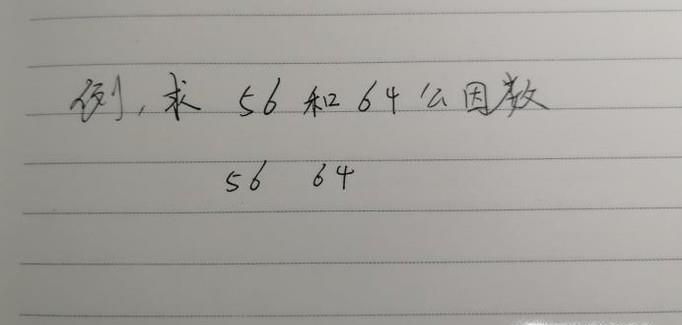 例,求 56 和 64 公因数
56 64